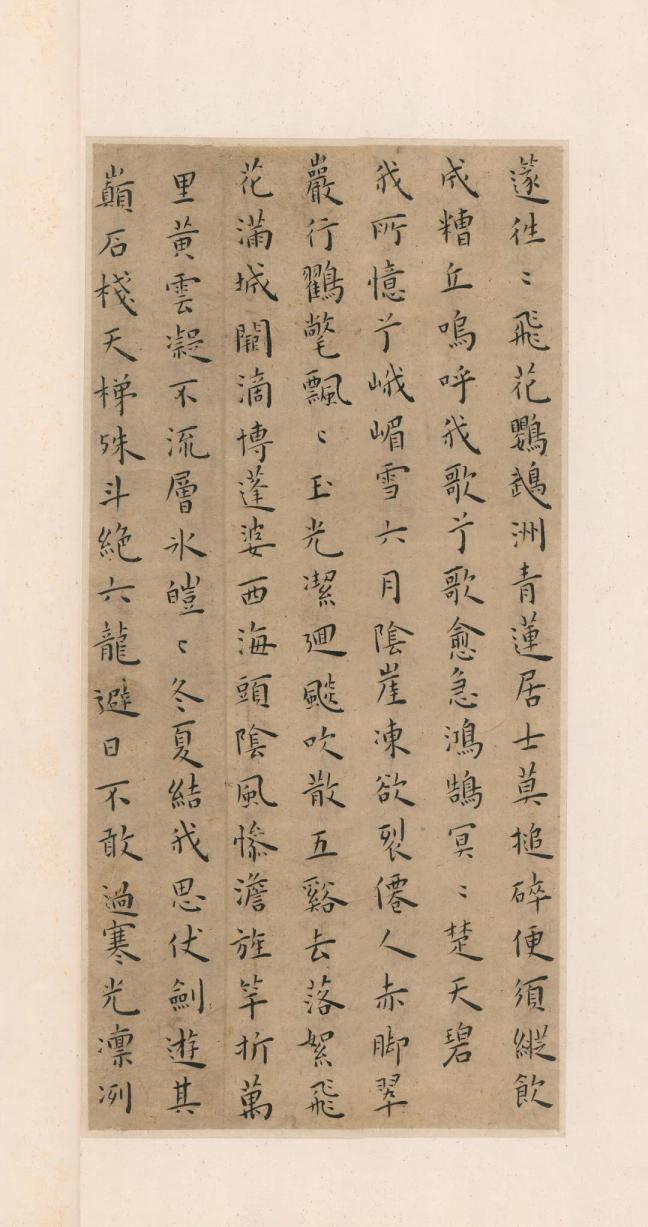 遂往〻飛花鸚鵡洲青蓮居士莫搥碎便須縱飲
成糟丘嗚呼我歌兮歌愈急鴻鵠冥〻楚天碧
我所憶兮峨嵋雪六月陰崖凍欲裂僊人赤脚翠
巖行鸐氅飄〻玉光潔廻飈吹散五谿去落絮飛
花滿城闉滴博蓬婆西海頭陰風慘澹旌竿折萬
里黃雲凝不流層氷皚〻冬夏結我思伏劍遊其
巔石棧天梯殊斗絕六龍避日不敢過寒光凛冽